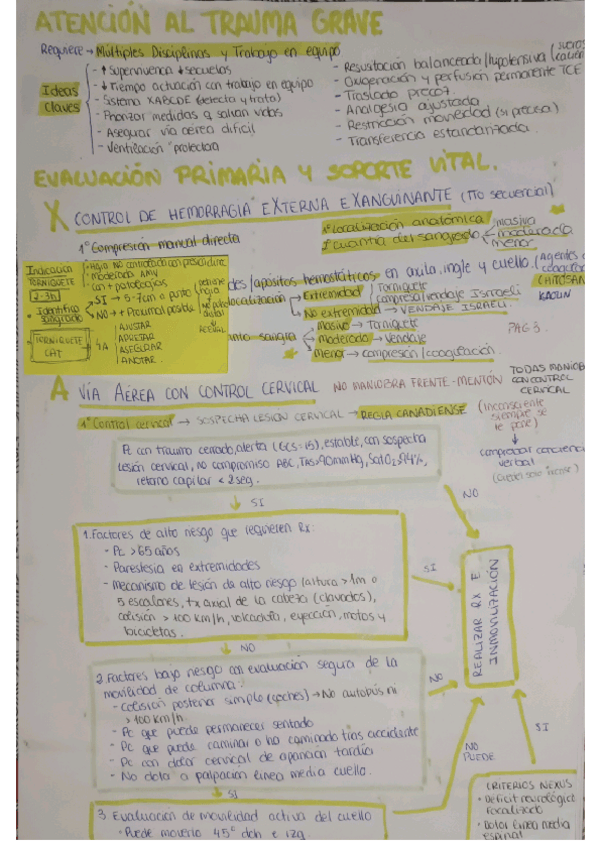 ATENCIÓN AL TRAUMA GRAVE
Requiere → Múltiples Disciplinas y Trabajo en equipo
Ideas Claves
- ↑ Supervivencia ↓ secuelas
- ↓ Tiempo actuación con trabajo en equipo
- Sistema XABCDE (detecta y trata)
- Priorizar medidas q salvan vidas
- Asegurar vía aérea difícil
- Ventilación protectora
- Resucitación balanceada/hipotensiva
- Oxigenación y perfusión permanente TCE
- Traslado precoz
- Analgesia ajustada
- Restricción movilidad (si precisa)
- Transferencia estandarizada.
EVALUACIÓN PRIMARIA Y SOPORTE VITAL.
X CONTROL DE HEMORRAGIA EXTERNA EXANGUINANTE (TTO secuencial)
1º Compresión manual directa
1º localización anatómica
2º cuantía del sangrado
masiva
moderada
menor
Indicación TORNIQUETE
2-3h
• Hgia NO controlada con presión dire
• moderada AMV
• con + patologías
• Identifico sangrado
SI → 5-7cm o punto
NO → + Proximal posible
TORNIQUETE CAT
4A
AJUSTAR
APRETAR
ASEGURAR
ANOTAR.
/apósitos hemostáticos en axila, ingle y cuello.
(Agentes
CHITOSAN
KAOLIN
localización
Extremidad
Torniquete
compresa/vendaje Israelí
No extremidad → VENDAJE ISRAELÍ.
sangra
Masiva → Torniquete
moderada → Vendaje
Menor → compresión/coagulación.
PAG 3.
A VÍA AÉREA CON CONTROL CERVICAL
NO MANIOBRA FRENTE-MENTÓN
TODAS MANIOB
CON CONTROL
CERVICAL
1º Control cervical → SOSPECHA LESIÓN CERVICAL → REGLA CANADIENSE
(Inconsciente
siempre se
le pone)
comprobar conciencia
verbal
Pc con trauma cerrado, alerta (GCS=15), estable, con sospecha
lesión cervical, no compromiso ABC, TAS>90mmHg, SatO2>94%,
retorno capilar < 2 seg.
SI
NO
1. Factores de alto riesgo que requieren Rx:
- Pc > 65 años
- Parestesia en extremidades
- Mecanismo de lesión de alto riesgo (altura > 1m o
5 escalones, tx axial de la cabeza (clavados),
colisión > 100 km/h, volcadura, eyección, motos y
bicicletas.
SI
REALIZAR RX E INMOVILIZACIÓN
NO
2. Factores bajo riesgo con evaluación segura de la
movilidad de columna:
- Colisión posterior simple (coches) → No autobús ni
> 100 km/h
- Pc que puede permanecer sentado
- Pc que puede caminar o ha caminado tras accidente
- Pc con dolor cervical de aparición tardía
- No dolor a palpación línea media cuello.
NO
SI
NO PUEDE
SI
3. Evaluación de movilidad activa del cuello
• Puede moverlo 45º dch e izq.
CRITERIOS NEXUS
• Déficit neurológico
focalizado
• Dolor línea media
espinal